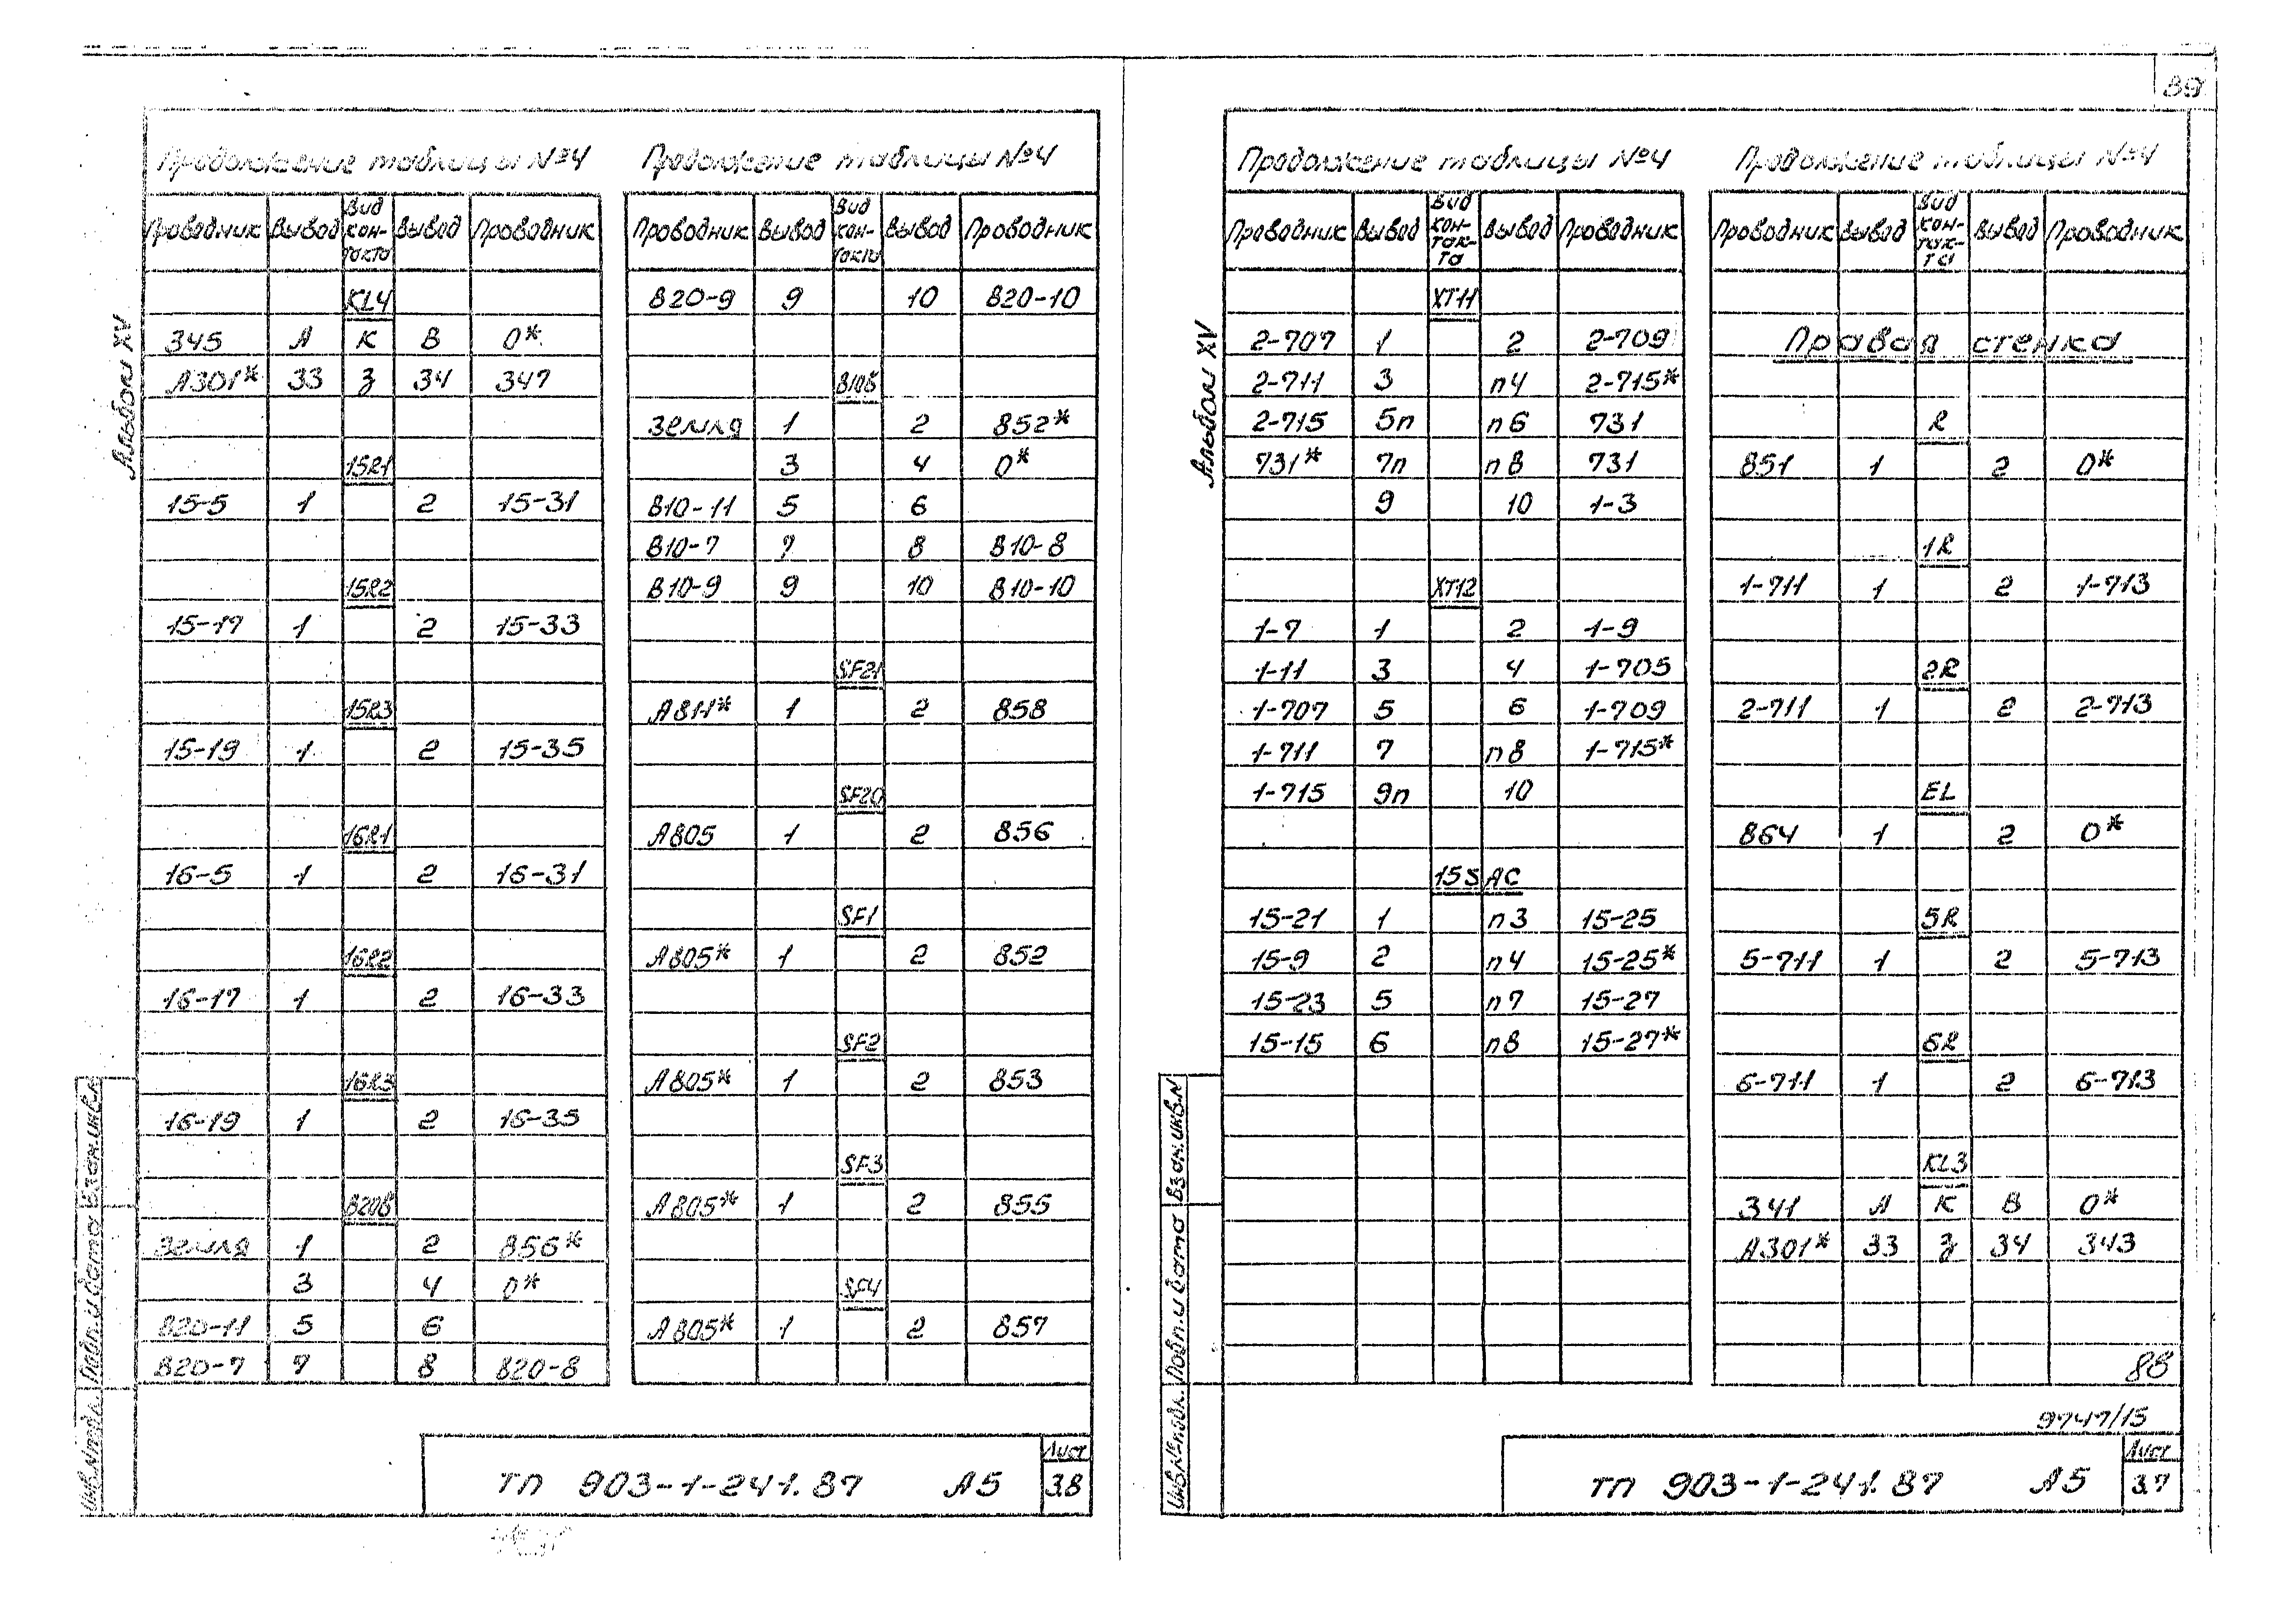 89
Альбом XV
Продолжение таблицы №4
Проводник Вывод Вид контакта Вывод Проводник
KL4
345 А К В 0*
А301* 33 З 34 347
15R1
15-5 1 2 15-31
15R2
15-17 1 2 15-33
15R3
15-19 1 2 15-35
16R1
16-5 1 2 16-31
16R2
16-17 1 2 16-33
16R3
16-19 1 2 16-35
В20Б
Земля 1 2 856*
3 4 0*
820-11 5 6
820-7 7 8 820-8
Продолжение таблицы №4
Проводник Вывод Вид контакта Вывод Проводник
820-9 9 10 820-10
В10Б
Земля 1 2 852*
3 4 0*
810-11 5 6
810-7 7 8 810-8
810-9 9 10 810-10
SF21
А811* 1 2 858
SF20
А805 1 2 856
SF1
А805* 1 2 852
SF2
А805* 1 2 853
SF3
А805* 1 2 855
SF4
А805* 1 2 857
Инв.№подл. Подп. и дата Взам.инв.N
ТП 903-1-241.87 А5
Лист
38
Альбом XV
Продолжение таблицы №4
Проводник Вывод Вид контакта Вывод Проводник
XT11
2-707 1 2 2-709
2-711 3 п4 2-715*
2-715 5п п6 731
731* 7п п8 731
9 10 1-3
XT12
1-7 1 2 1-9
1-11 3 4 1-705
1-707 5 6 1-709
1-711 7 п8 1-715*
1-715 9п 10
15SAC
15-21 1 п3 15-25
15-9 2 п4 15-25*
15-23 5 п7 15-27
15-15 6 п8 15-27*
Продолжение таблицы №4
Проводник Вывод Вид контакта Вывод Проводник
Правая стенка
R
851 1 2 0*
1R
1-711 1 2 1-713
2R
2-711 1 2 2-713
EL
864 1 2 0*
5R
5-711 1 2 5-713
6R
6-711 1 2 6-713
KL3
341 А К В 0*
А301* 33 З 34 343
88
9747/15
Инв.№подл. Подп. и дата Взам.инв.N
ТП 903-1-241.87 А5
Лист
37